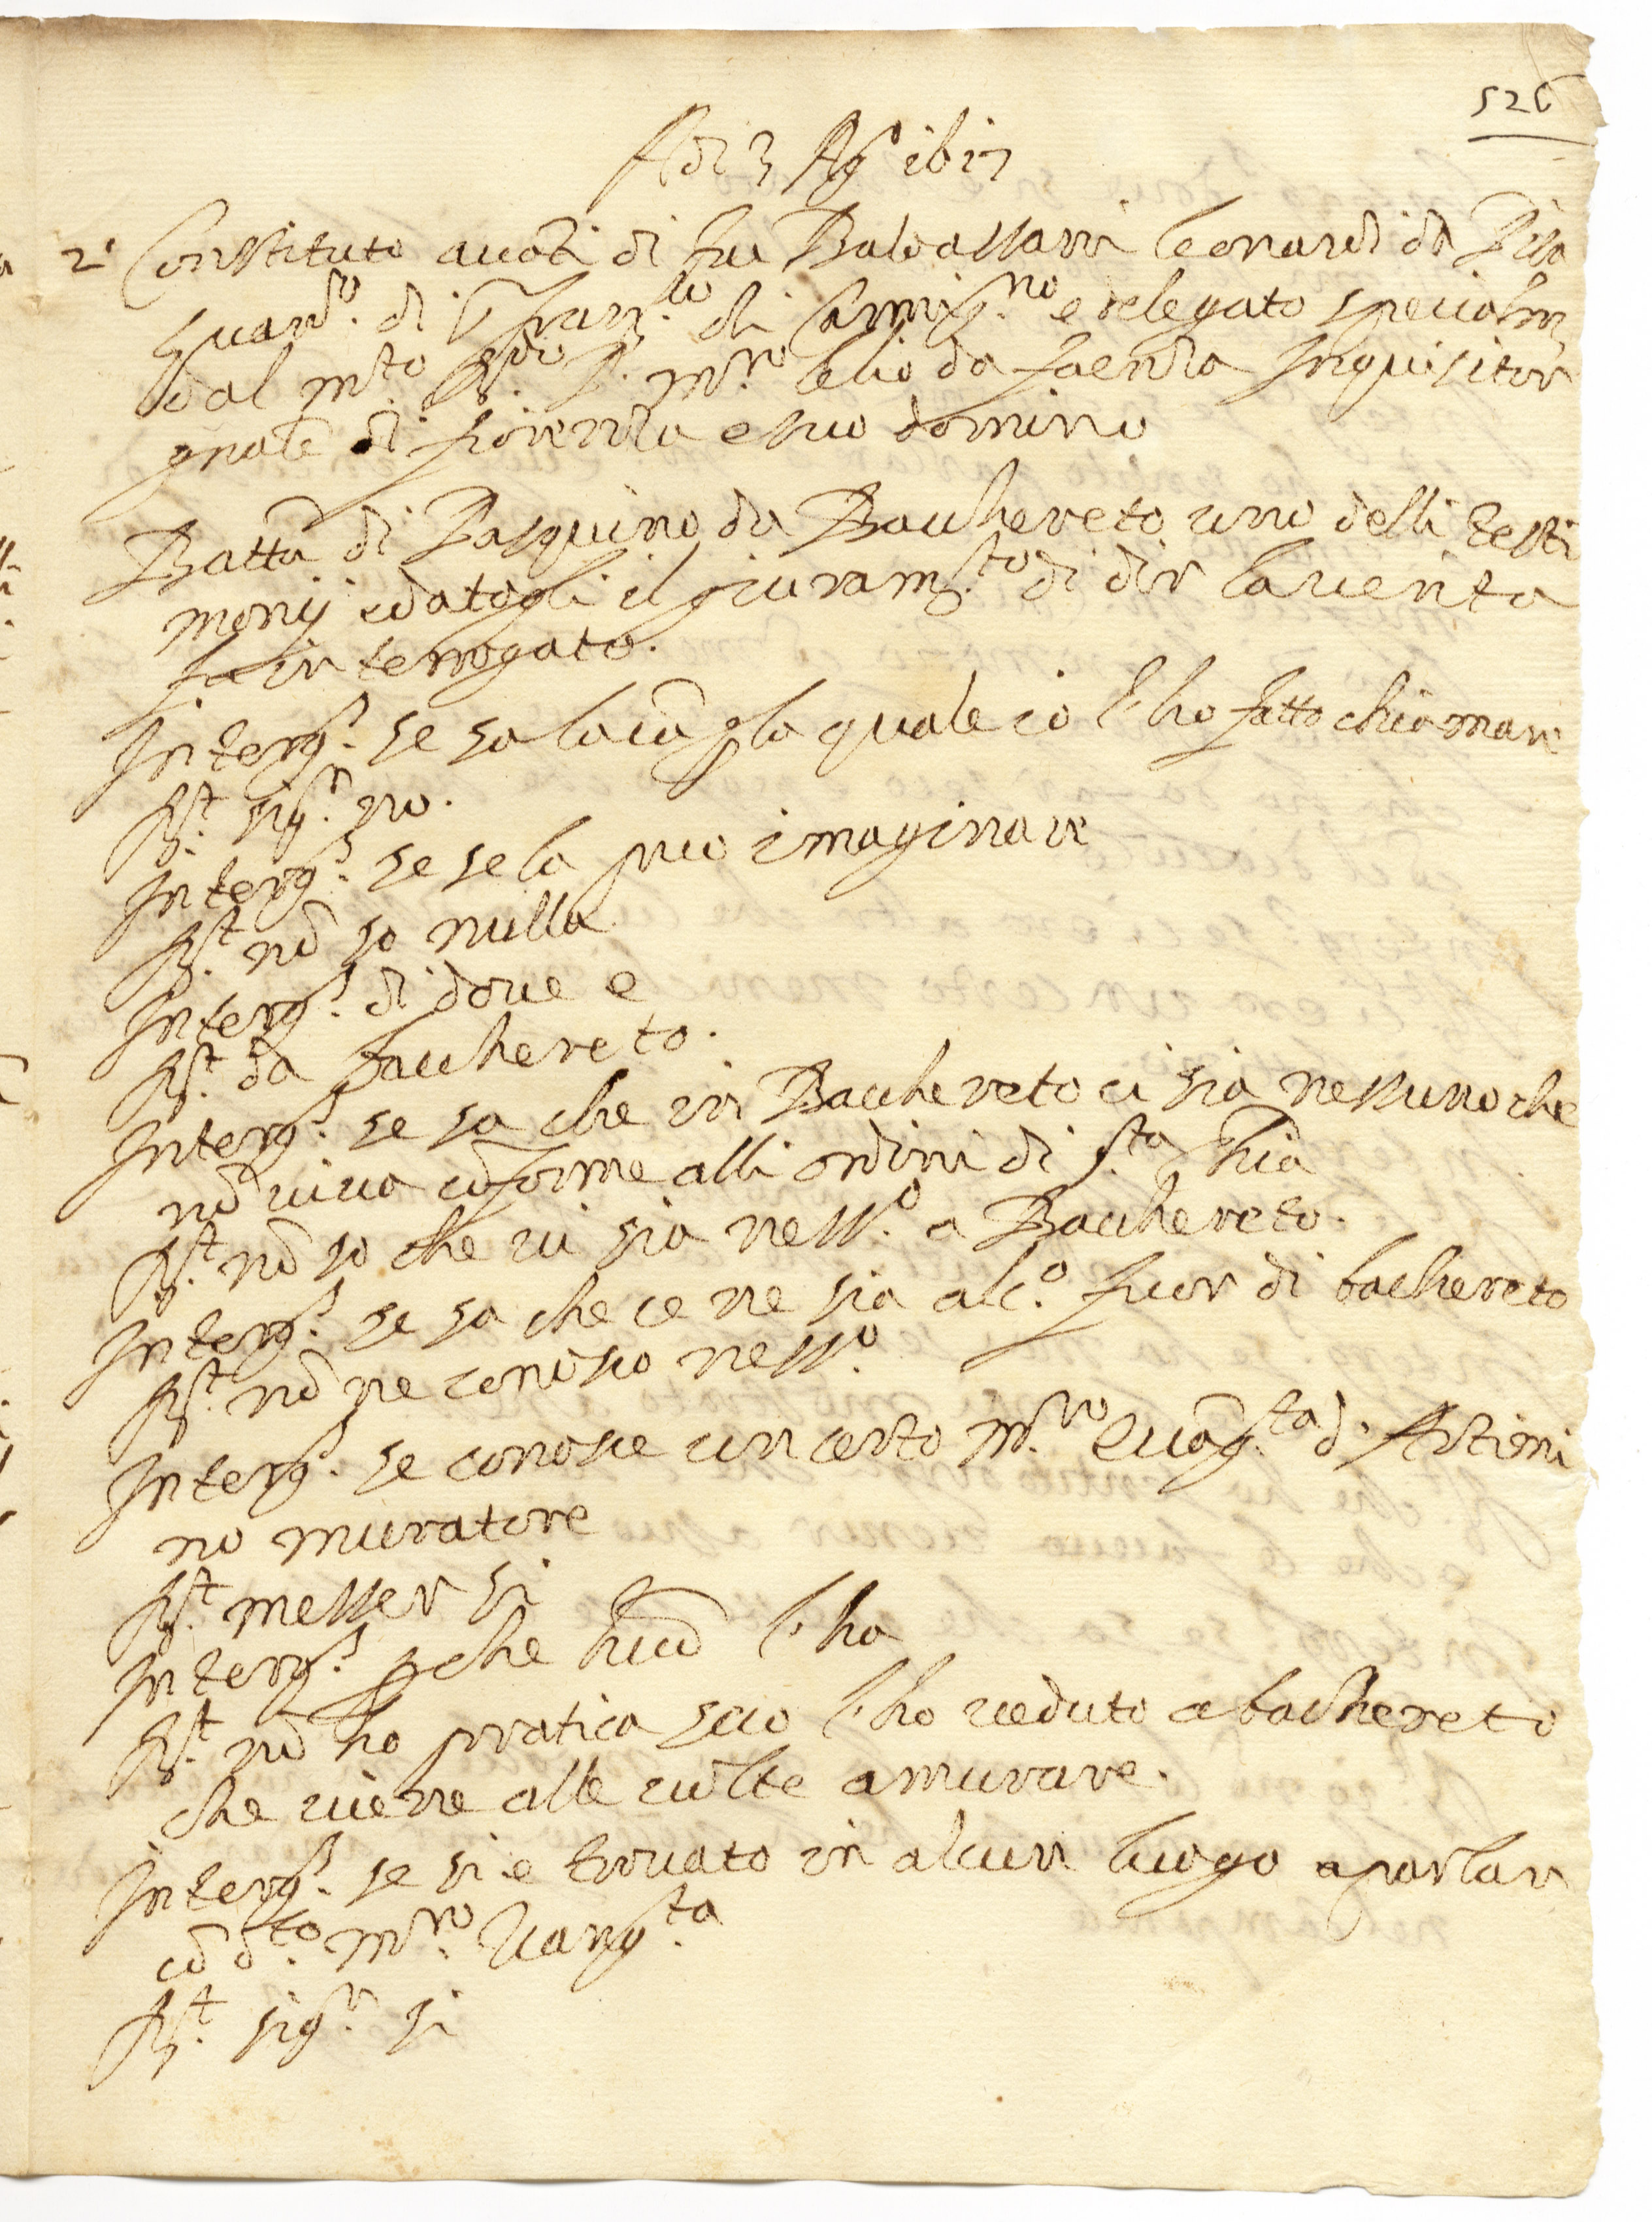 526
Adi 3 Agº 1617
2º Constituto auāti di fra Baldassarri Leonardi da Pisa
Guardº. di S. Franº. di Carmigº. e delegato specialm
dal mto Rdo P. Mro lelio da faenza Inquisitor
gnale di fiorenza e suo dominio
Battā di Pasquino da Bacchereto uno delli testi
monij e datogli il giuramto di dir la uerita
fu interrogato.
Interg. se sa la cā p la quale io l'ho fatto chiamare
Rst. sigr. no.
Interg. se se la puo imaginare
Rst. nō so nulla
Interg. di doue e
Rst. da bacchereto.
Interg. se sa che in Bacchereto ci sia nessuno che
nō uiua cōforme alli ordini di Sta Chia
Rst. nō so che ui sia nessº. a Bacchereto.
Interg. se sa che ce ne sia alcº. fuor di bachereto
Rst. nō ne conosco nessº.
Interg. se conosce un certo Mro Euāgta d'Artimi
no muratore
Rst. messer si
Interg. che l'ha
Rst. nō ho pratica seco l'ho ueduto a bachereto
che uiene alle uolte a murare.
Interg. se si e trouato in alcun luogo a parlar
cō dto. Mro. Uangta
Rst. sigr. si